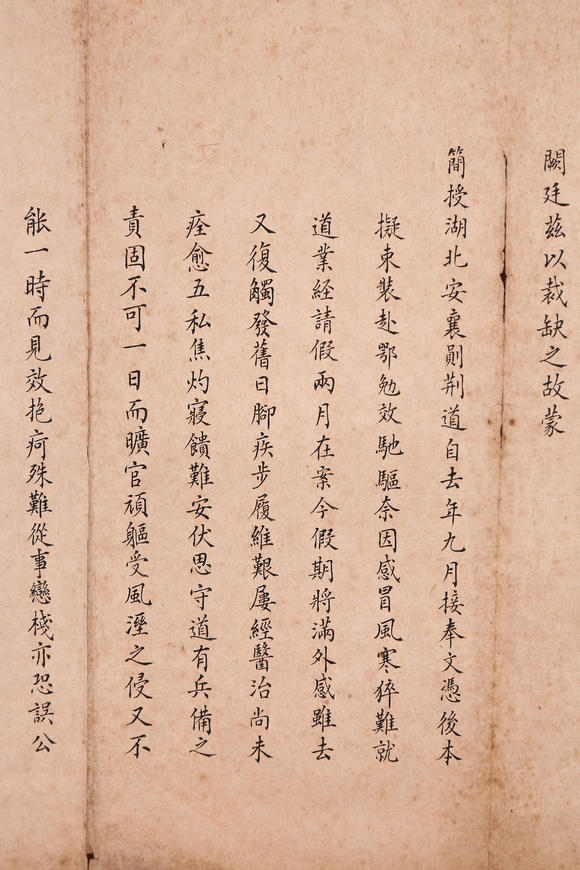 闕廷茲以裁缺之故蒙
簡授湖北安襄鄖荆道自去年九月接奉文憑後本
擬束裝赴鄂勉效馳驅奈因感冒風寒猝難就
道業経請假兩月在案今假期將滿外感雖去
又復觸發舊日腳疾步履維艱屢經醫治尚未
痊愈五私焦灼寢饋難安伏思守道有兵備之
責固不可一日而曠官頑軀受風溼之侵又不
能一時而見效抱疴殊難從事戀棧亦恐誤公